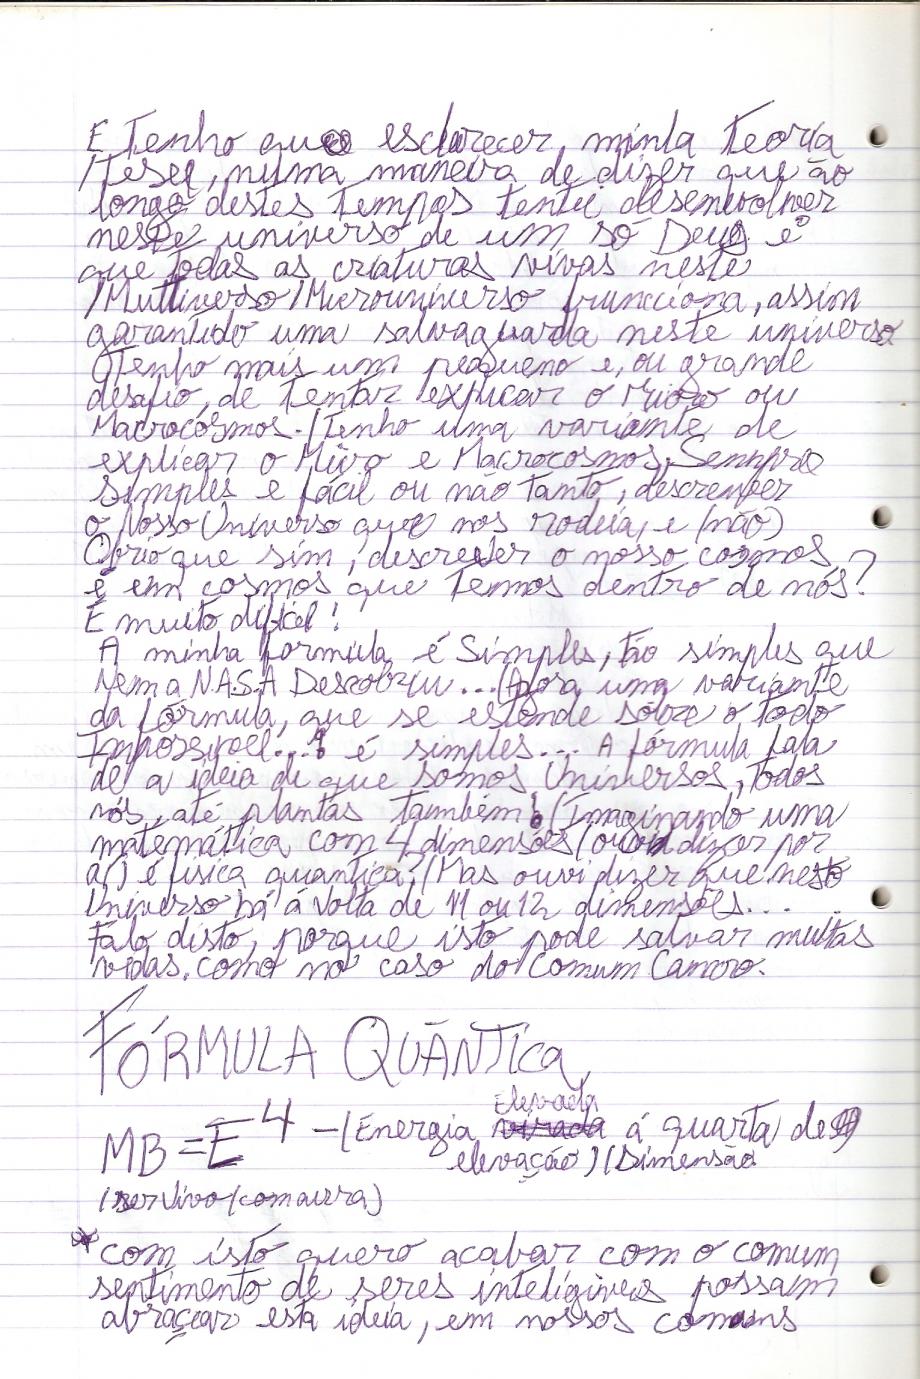 E Tenho que esclarecer, minha Teoria
/Tese, numa maneira de dizer que ao
longo destes Tempos Tentei desenvolver
neste universo de um só Deus é
que todas as criaturas vivas neste
/Multiverso/Microuniverso funcciona, assim
garantido uma salvaguarda neste universo
(Tenho mais um pequeno e, ou grande
desafio, de Tentar explicar o Micro ou
Macrocosmos. (Tenho uma variante de
explicar o Micro e Macrocosmos, Sempre
Simples e fácil ou não Tanto, descrever
o Nosso Universo que nos rodeia, e (não)
Óbvio que sim, descrever o nosso cosmos,
e em cosmos que Temos dentro de nós?
É muito difícil!
A minha formula, é Simples, tão simples que
Nem a N.A.S.A Descobriu...(Agora uma variante
da fórmula, que se estende sobre o Todo
Impossivel...? é simples... A fórmula fala
de a ideia de que somos Universos, Todos
nós, até plantas também! (Imaginando uma
matemática com 4 dimensões (ouvi dizer por
aí) é fisica quantica; (Mas ouvi dizer que neste
Universo há á volta de 11 ou 12 dimensões...
Falo disto, porque isto pode salvar muitas
vidas, como no caso do Comum Cancro.
FÓRMULA QUÂNTICA
MB = E⁴ – (Energia Elevada á quarta de
elevação) (Dimensão
(ser Vivo (com aura)
* com isto quero acabar com o comum
sentimento de seres inteligiveis possam
abraçar esta ideia, em nossos comuns